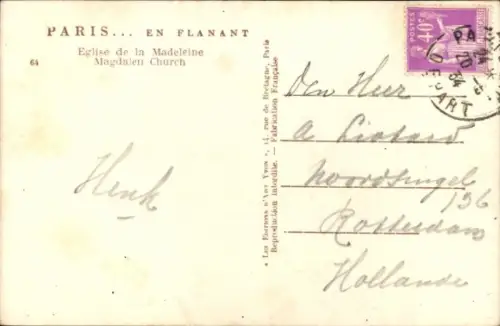 PARIS... EN FLANANT
Eglise de la Madeleine
64 Magdalen Church
Henk
« Les Editions d'Art Yvon », 15, rue de Bretagne, Paris
Reproduction interdite. - Fabrication Française
POSTES
40c
PA
20
34
DEPART
Den Heer
A
Noordsingel
136
Rotterdam
Hollande